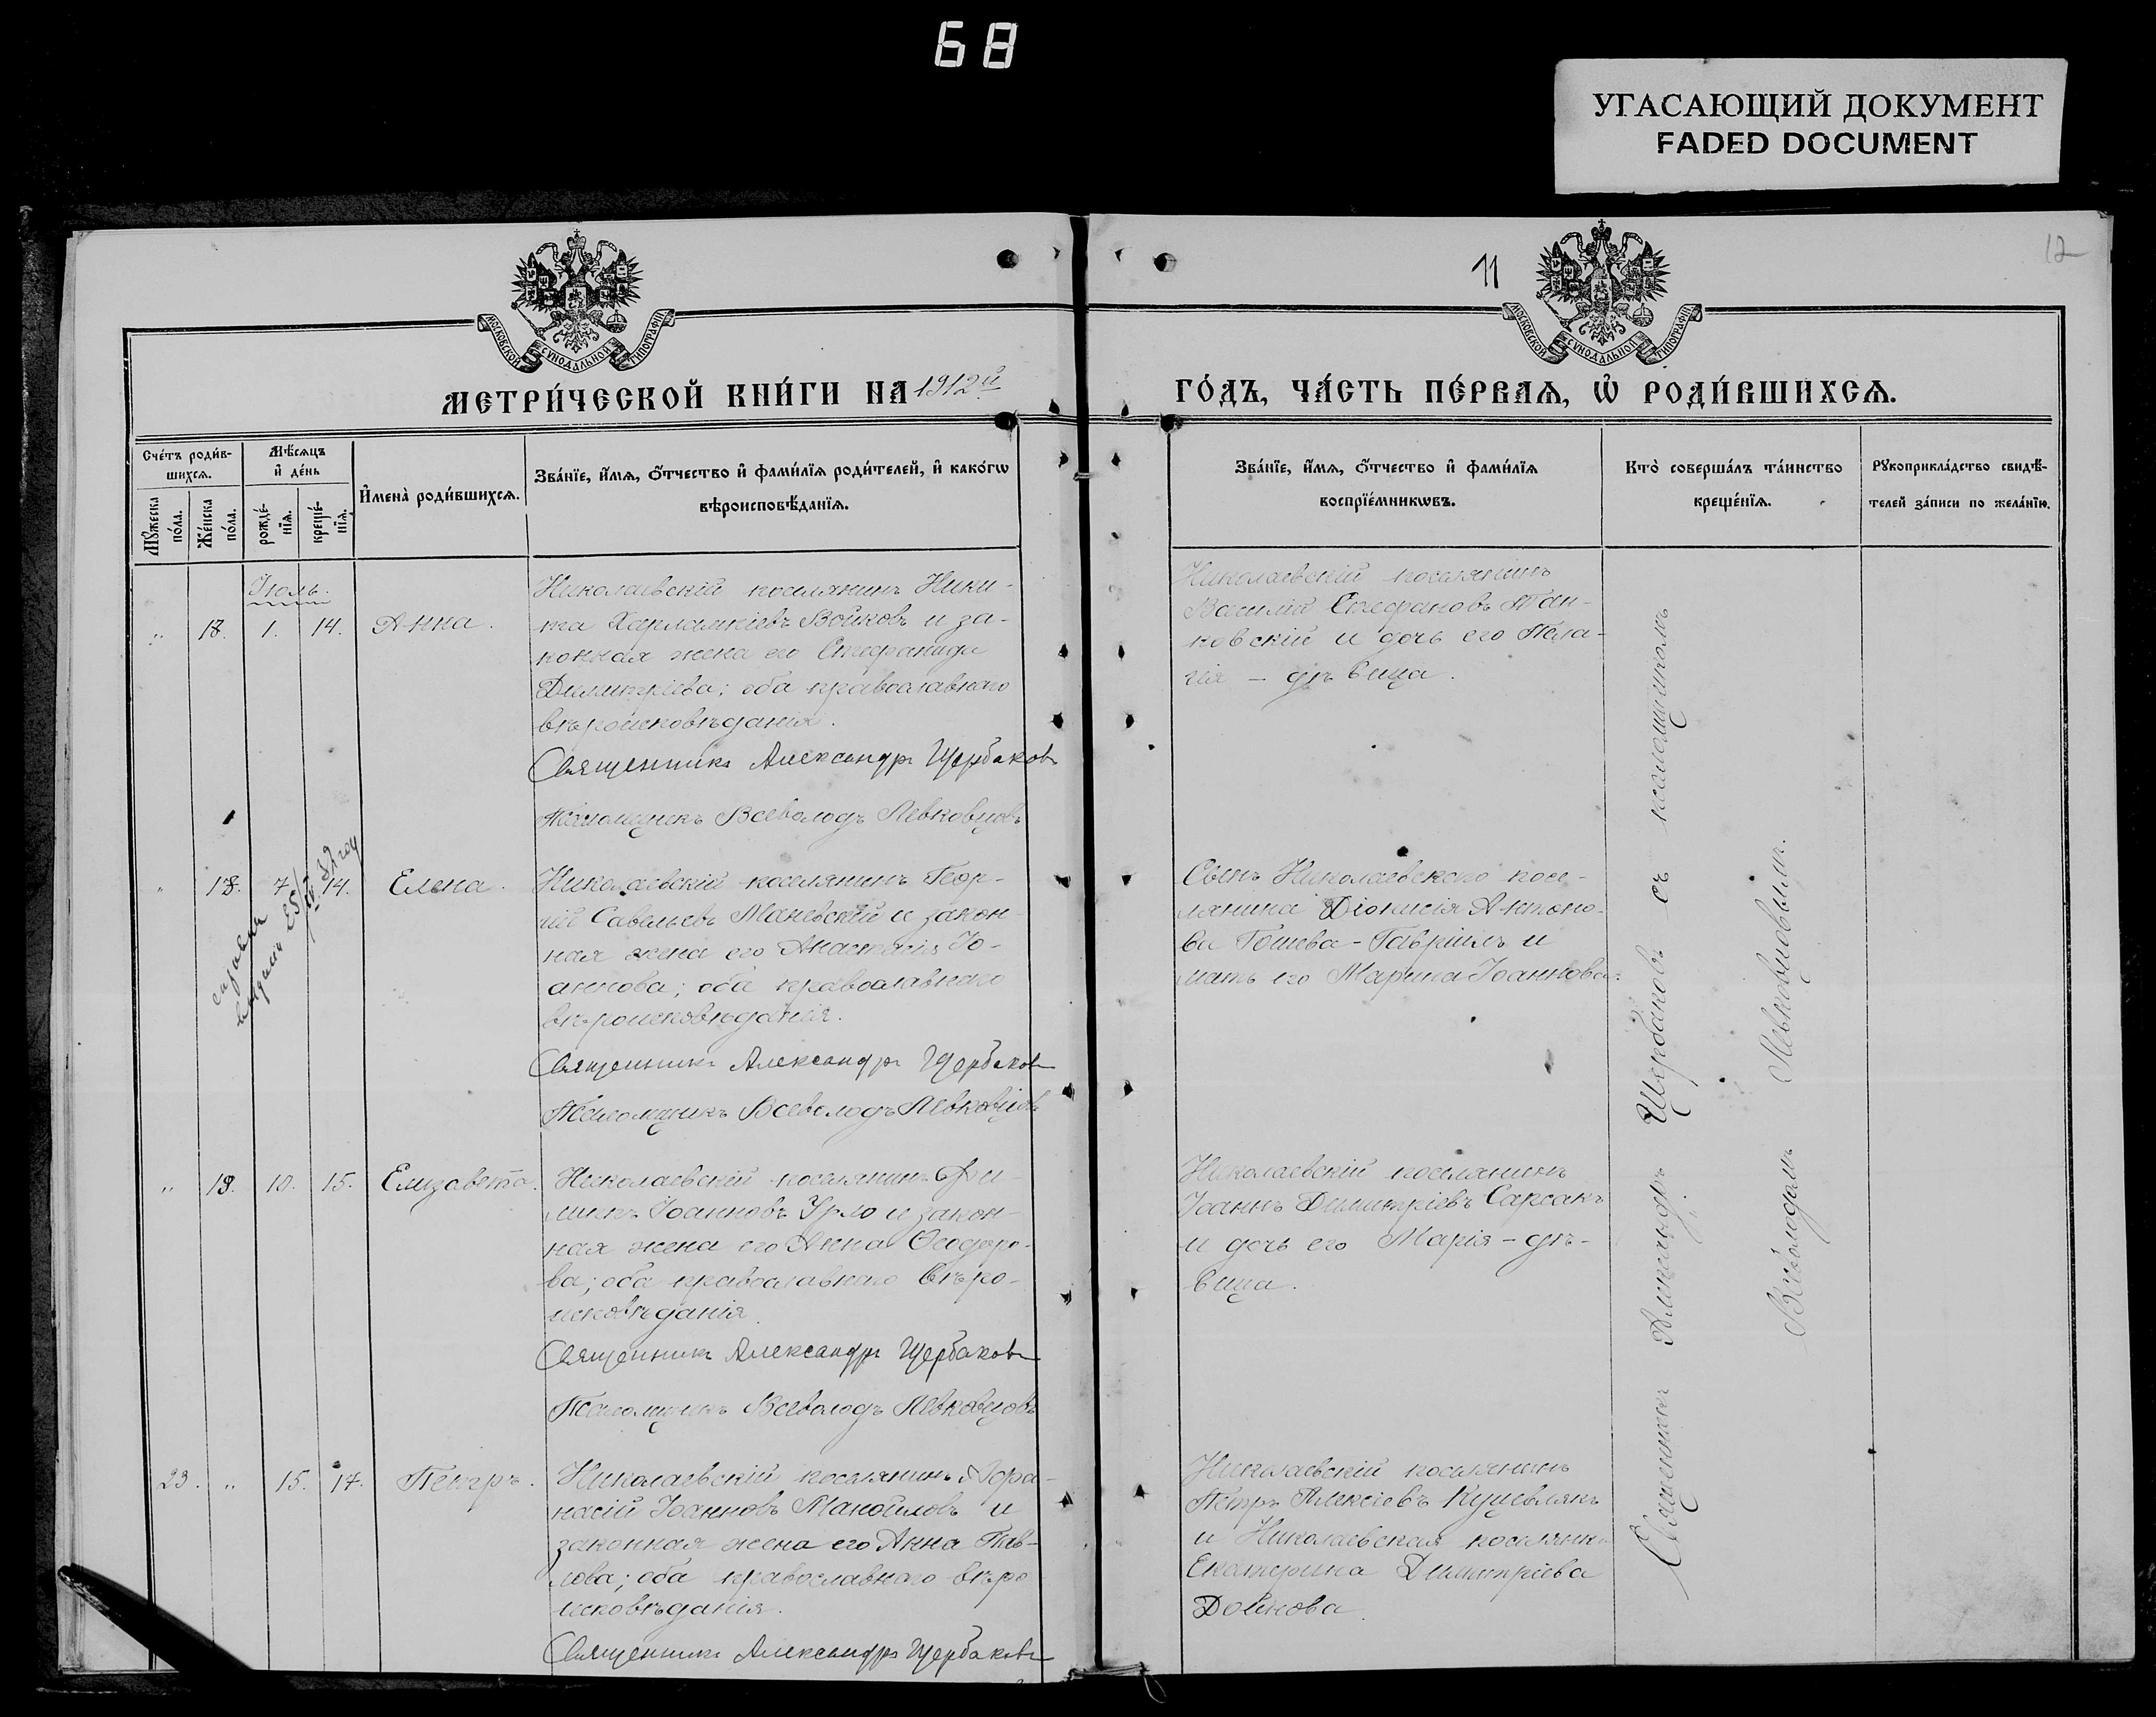 68
УГАСАЮЩИЙ ДОКУМЕНТ
FADED DOCUMENT
12
11
МОСКОВСКОЙ СѴНОДАЛЬНОЙ ТИПОГРАФІИ
МОСКОВСКОЙ СѴНОДАЛЬНОЙ ТИПОГРАФІИ
МЕТРИ́ЧЕСКОЙ КНИ́ГИ НА 1912й
ГО́ДЪ, ЧА́СТЬ ПЕ́РВАѦ, Ѡ҆ РОДИ́ВШИХСѦ.
Сче́тъ роди́в-
шихсѧ.
Мꙋ́жеска по́ла.
Же́нска по́ла.
Мѣ́сяцъ
и҆ де́нь
рожде́-
нїѧ.
креще́-
нїѧ.
И҆мена̀ роди́вшихсѧ.
Зва́нїе, и҆́мѧ, ѻ҆́тчество и҆ фами́лїѧ роди́телей, и҆ како́гѡ
вѣроисповѣ́данїѧ.
Зва́нїе, и҆́мѧ, ѻ҆́тчество и҆ фами́лїѧ
воспрїе́мникѡвъ.
Кто̀ соверша́лъ та́инство
креще́нїѧ.
Рꙋкоприкла́дство свидѣ́-
телей за́писи по жела́нїю.
Іюль.
" 17. 1. 14. Анна.
Николаевскій поселянинъ Ники-
та Харлампіевъ Войковъ и за-
конная жена его Стефанида
Димитріева; оба православнаго
вѣроисповѣданія.
Священникъ Александръ Щербаковъ
Псаломщикъ Всеволодъ Левковцовъ
Николаевскій поселянинъ
Василій Стефановъ Тан-
ковскій и дочь его Пела-
гія – дѣвица.
" 18. 7. 14. Елена.
Николаевскій поселянинъ Геор-
гій Савельевъ Маневскій и закон-
ная жена его Анастасія Іо-
аннова; оба православнаго
вѣроисповѣданія.
Священникъ Александръ Щербаковъ
Псаломщикъ Всеволодъ Левковцовъ
справка
выдана
Сынъ Николаевскаго посе-
лянина Діонисія Антоно-
ва Гошева-Гавріилъ и
мать его Марина Іоаннова.
" 19. 10. 15. Елизавета.
Николаевскій поселянинъ Фи-
липпъ Іоанновъ Урло и закон-
ная жена его Анна Ѳеодоро-
ва; оба православнаго вѣро-
исповѣданія.
Священникъ Александръ Щербаковъ
Псаломщикъ Всеволодъ Левковцовъ
Николаевскій поселянинъ
Іоаннъ Димитріевъ Сарсакъ
и дочь его Марія – дѣ-
вица.
23. " 15. 17. Петръ.
Николаевскій поселянинъ Афа-
насій Іоанновъ Манойловъ и
законная жена его Анна Пав-
лова; оба православнаго вѣро
исповѣданія.
Священникъ Александръ Щербаковъ
Николаевскій поселянинъ
Петръ Алексіевъ Кушевлякъ
и Николаевская поселянка
Екатерина Димитріева
Дойнова.
Священникъ Александръ Щербаковъ съ псаломщикомъ
Всеволодомъ Левковцовымъ.